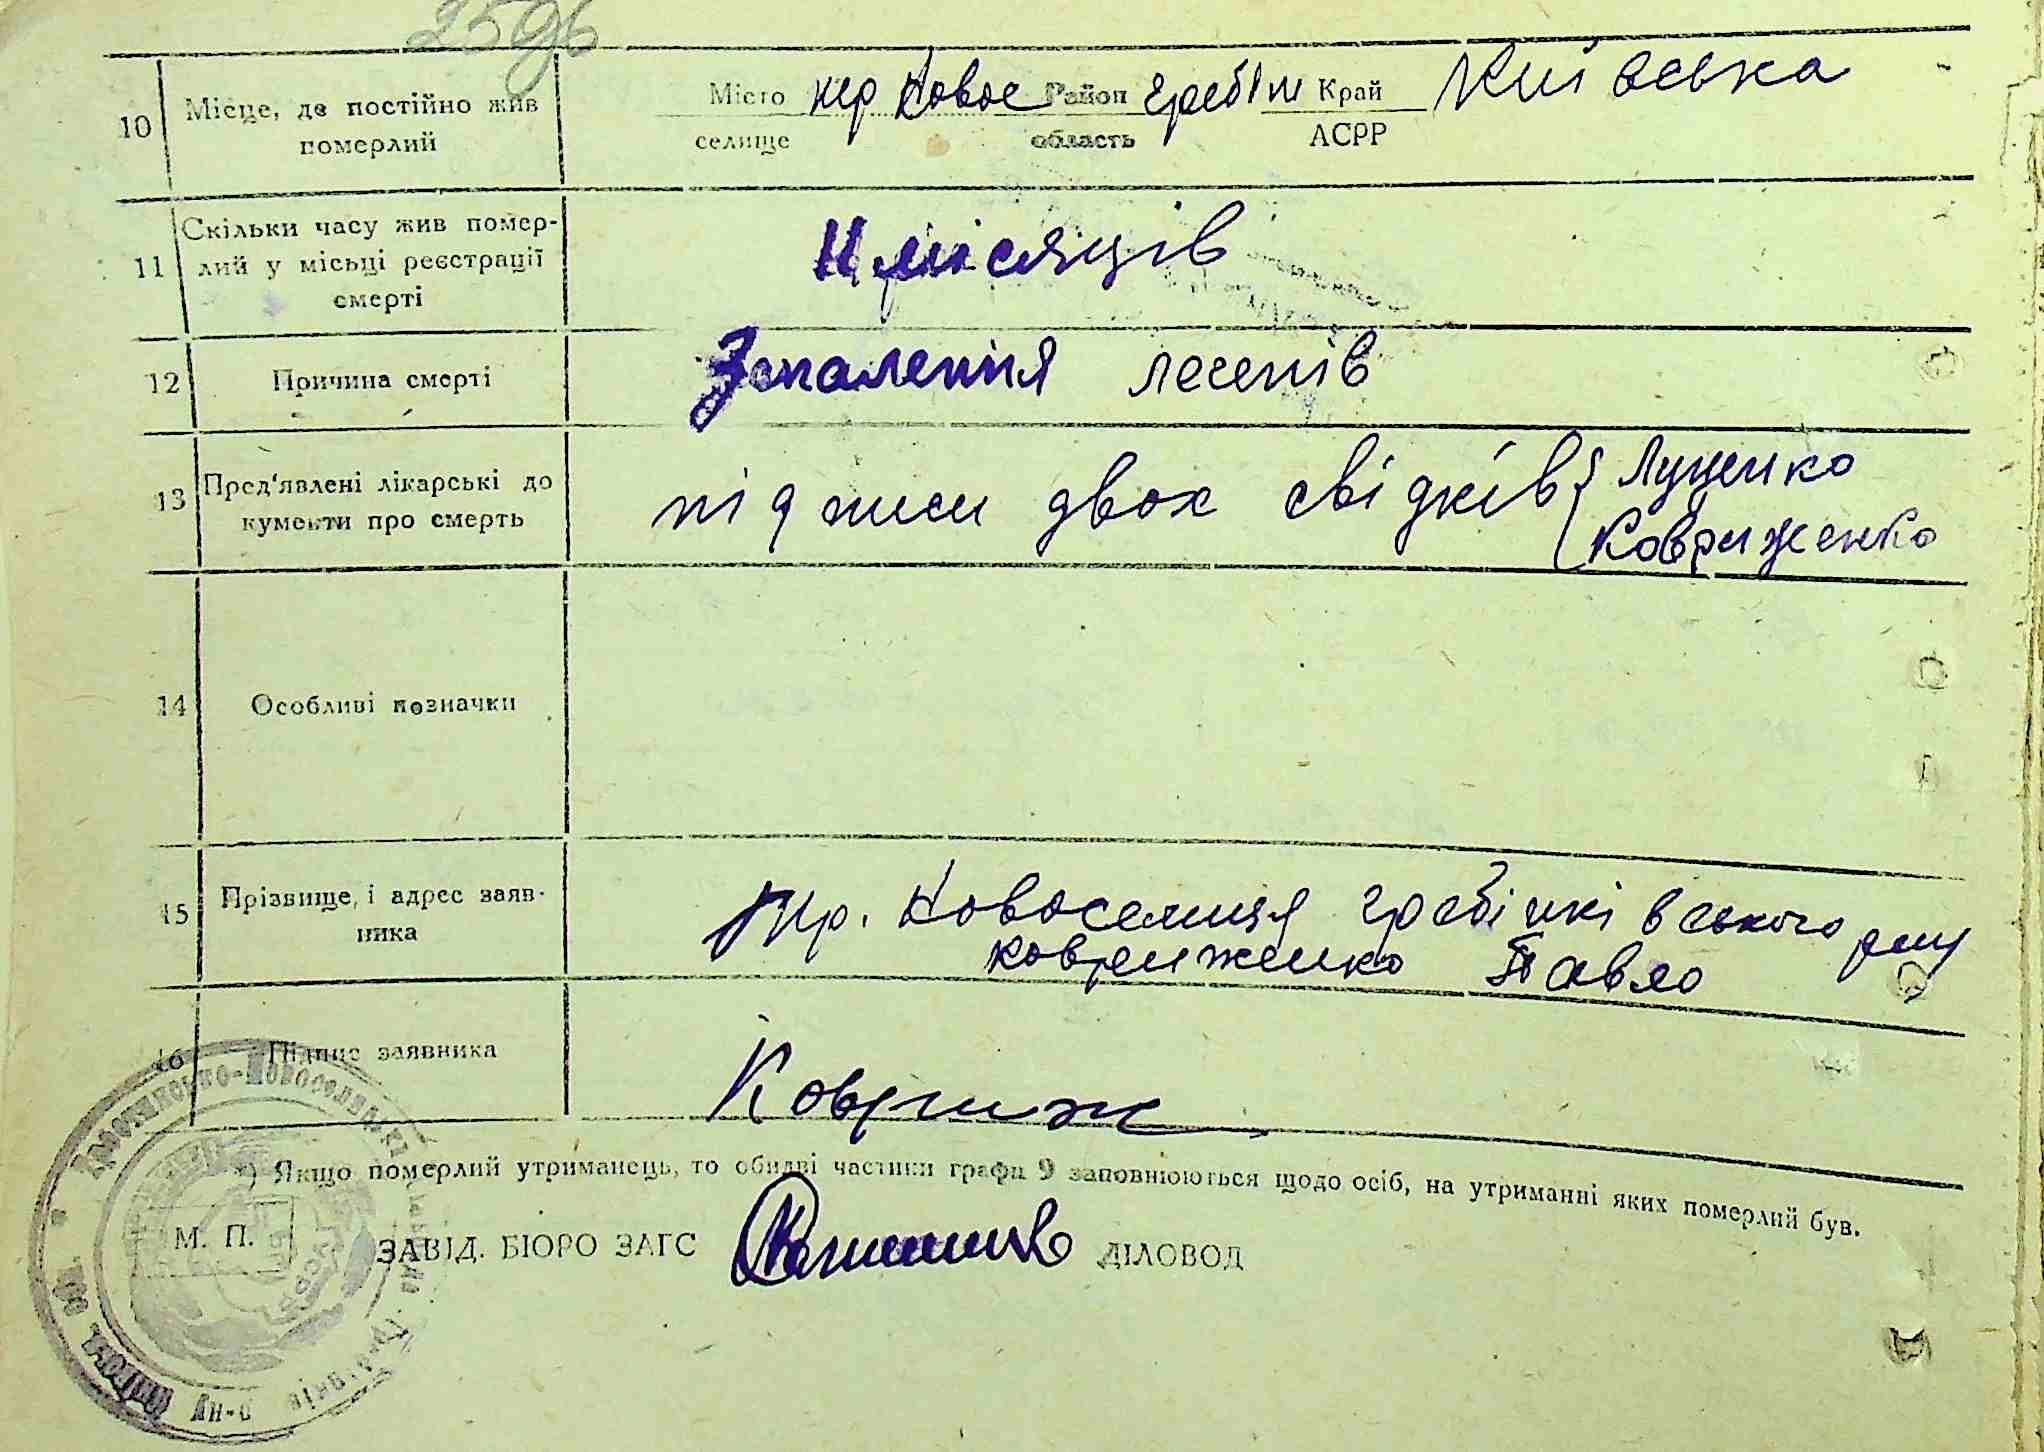 2596
10 Місце, де постійно жив померлий
Місто кср Новос Район Гребін Край Київська
селище область АСРР
11 Скільки часу жив помер-
лий у місьці реєстрації
смерті
11 місяців
12 Причина смерті
Запалення легенів
13 Пред'явлені лікарські до
кументи про смерть
підписи двох свідків { Луценко
Ковриженко
14 Особливі позначки
15 Прізвище, і адрес заяв-
ника
Новоселиця Гребінківського рну
Ковриженко Павло
16 Підпис заявника
Ковриж
*) Якщо померлий утриманець, то обидві частини графи 9 заповнюються щодо осіб, на утриманні яких померлий був.
М. П.
ЗАВІД. БІОРО ЗАГС ДІЛОВОД